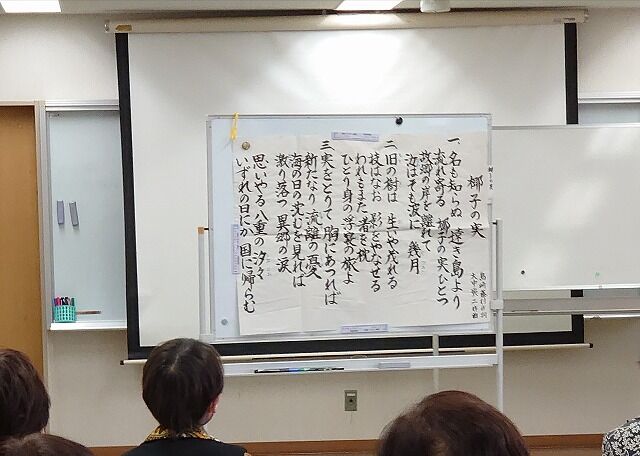 椰子の実
島崎藤村作詞
大中寅二作曲
一、名も知らぬ 遠き島より
流れ寄る 椰子の実ひとつ
故郷の岸を離れて
汝はそも波に 幾月
二、旧の樹は 生いや茂れる
枝はなお 影をやなせる
われもまた 渚を枕
ひとり身の 浮寝の旅よ
三、実をとりて 胸にあつれば
新たなり 流離の憂
海の日の 沈むを見れば
激り落つ 異郷の涙
思いやる 八重の汐々
いずれの日にか 国に帰らむ